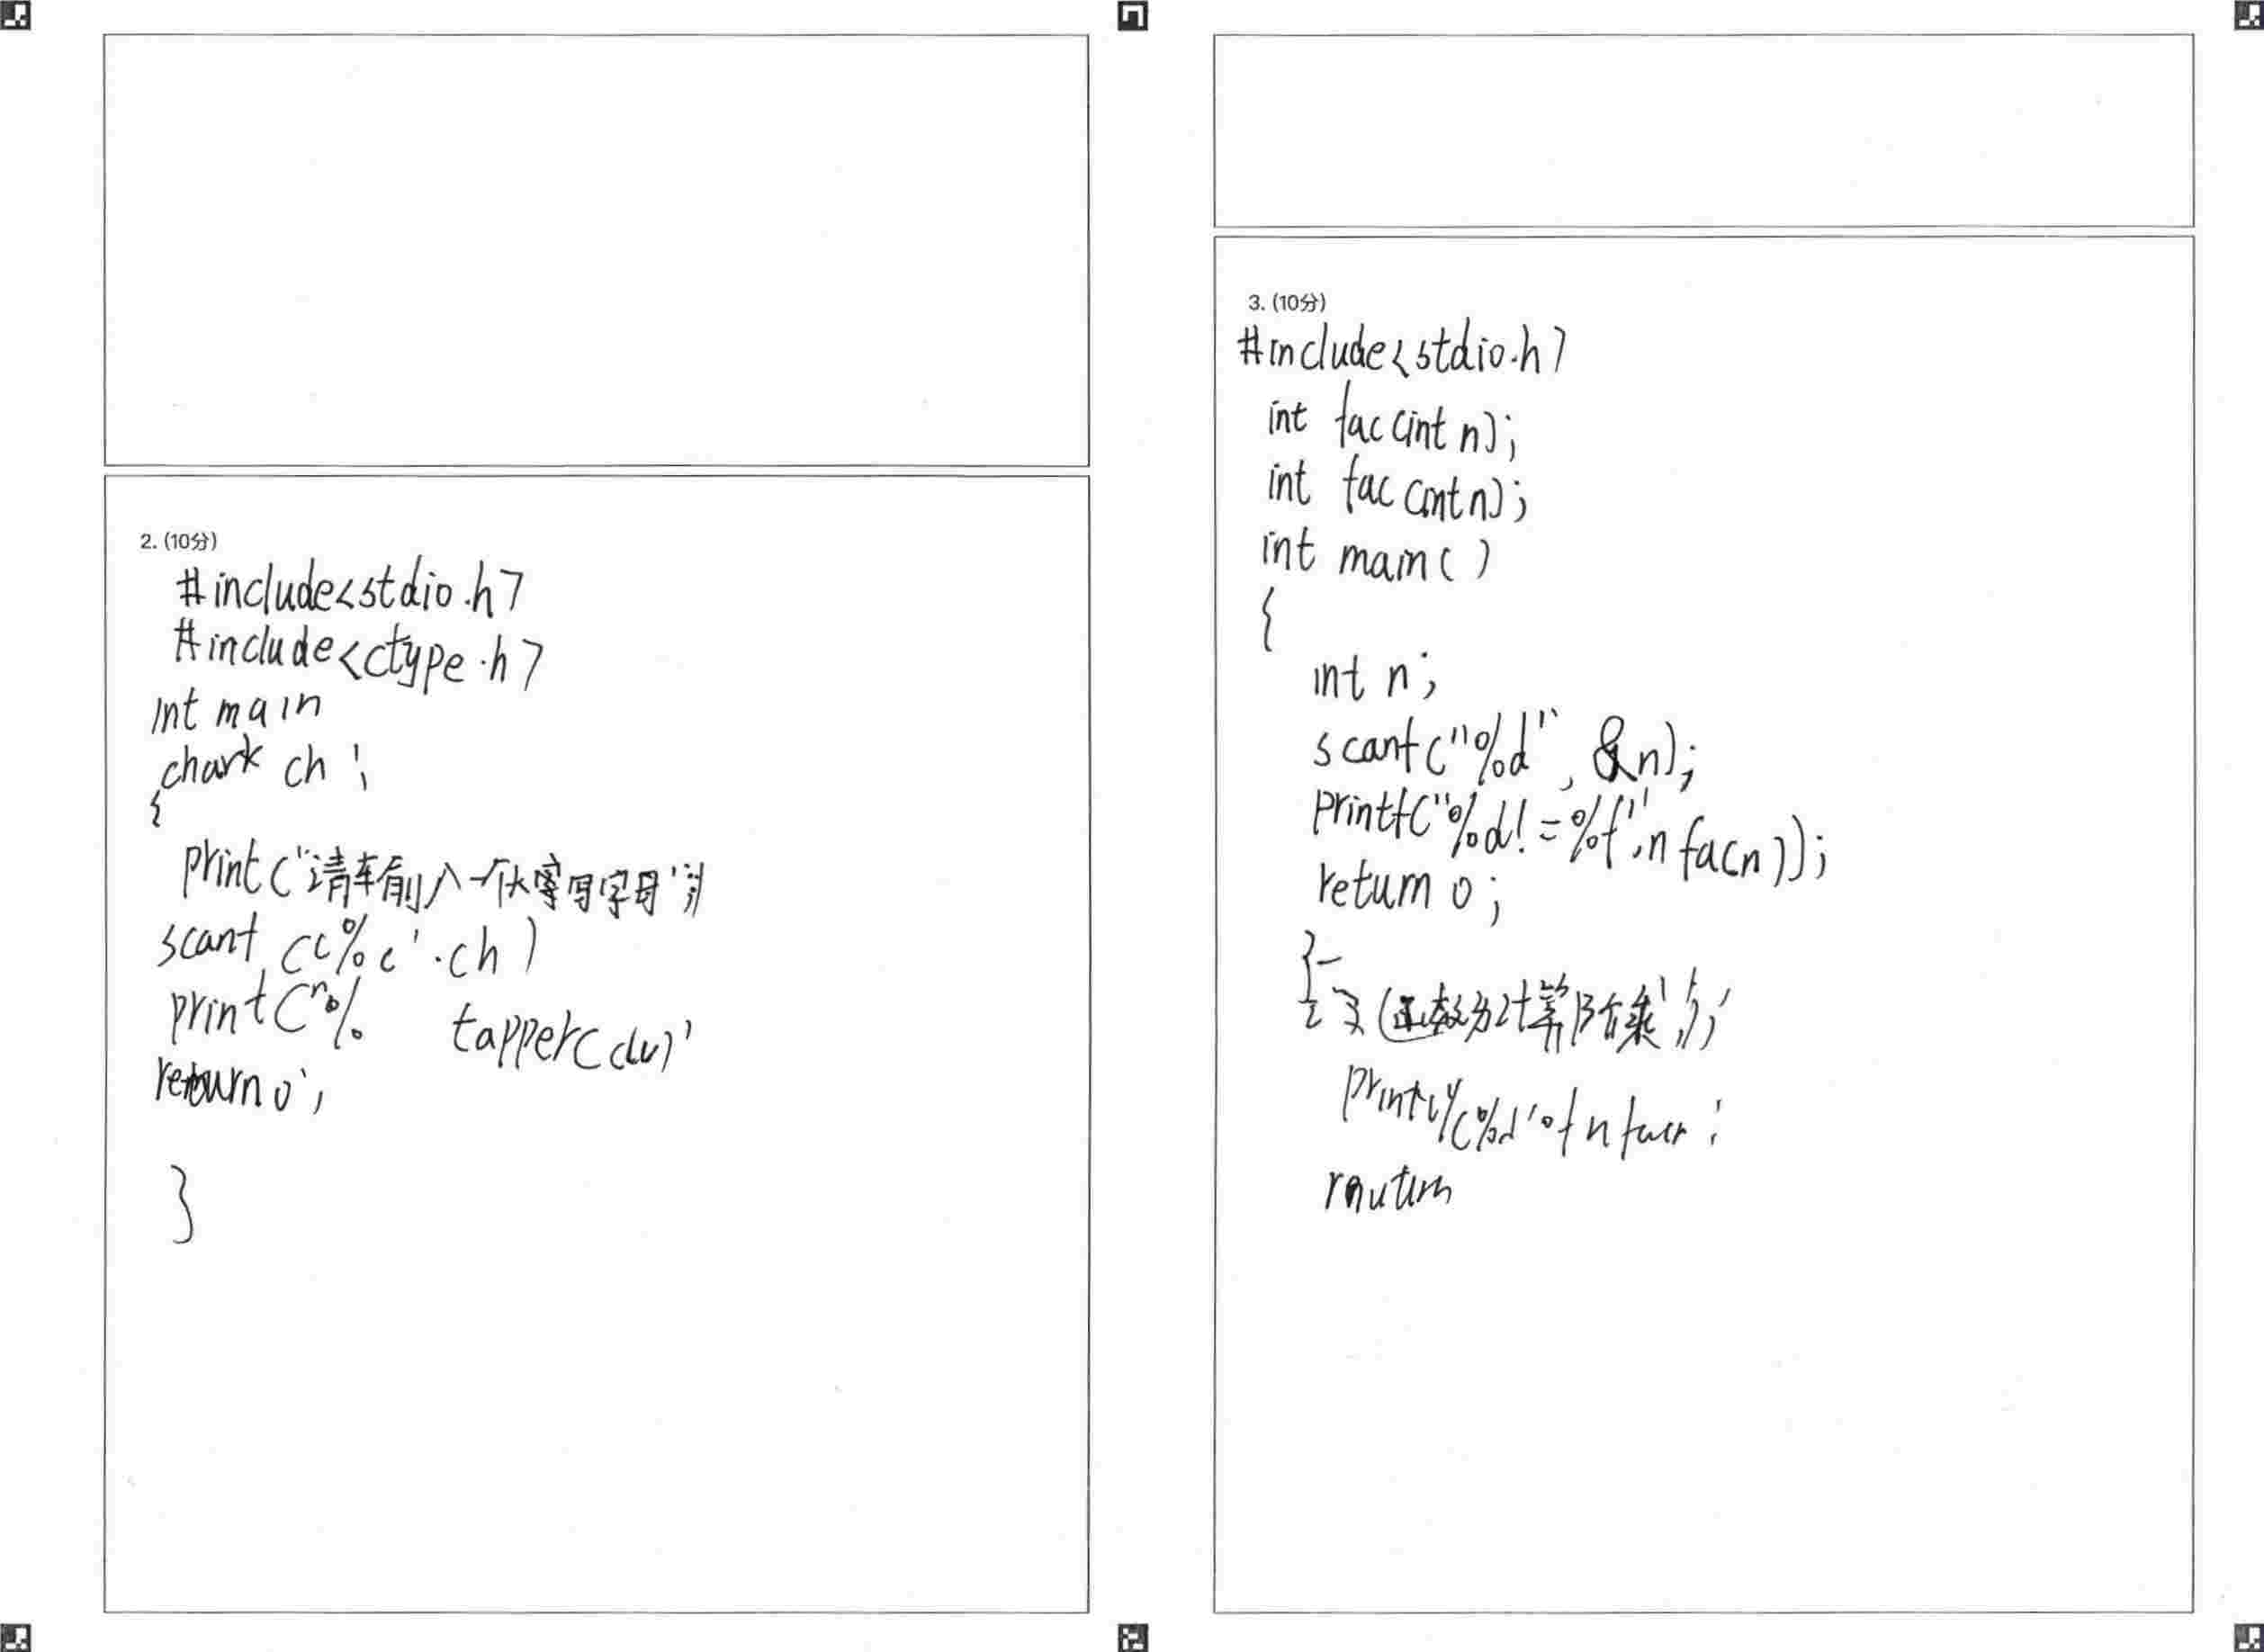 2. (10分)
#include<stdio.h>
#include<ctype.h>
int main
chark ch ;
{
print("请输入一个大写字母");
scanf (c%c' .ch )
print("% tapper(ch)'
return 0;
}
3. (10分)
#include<stdio.h>
int fac(int n);
int fac(int n);
int main( )
{
int n;
scanf("%d", &n);
printf("%d! = %f",n fac(n));
return 0;
}
(函数为计算阶乘